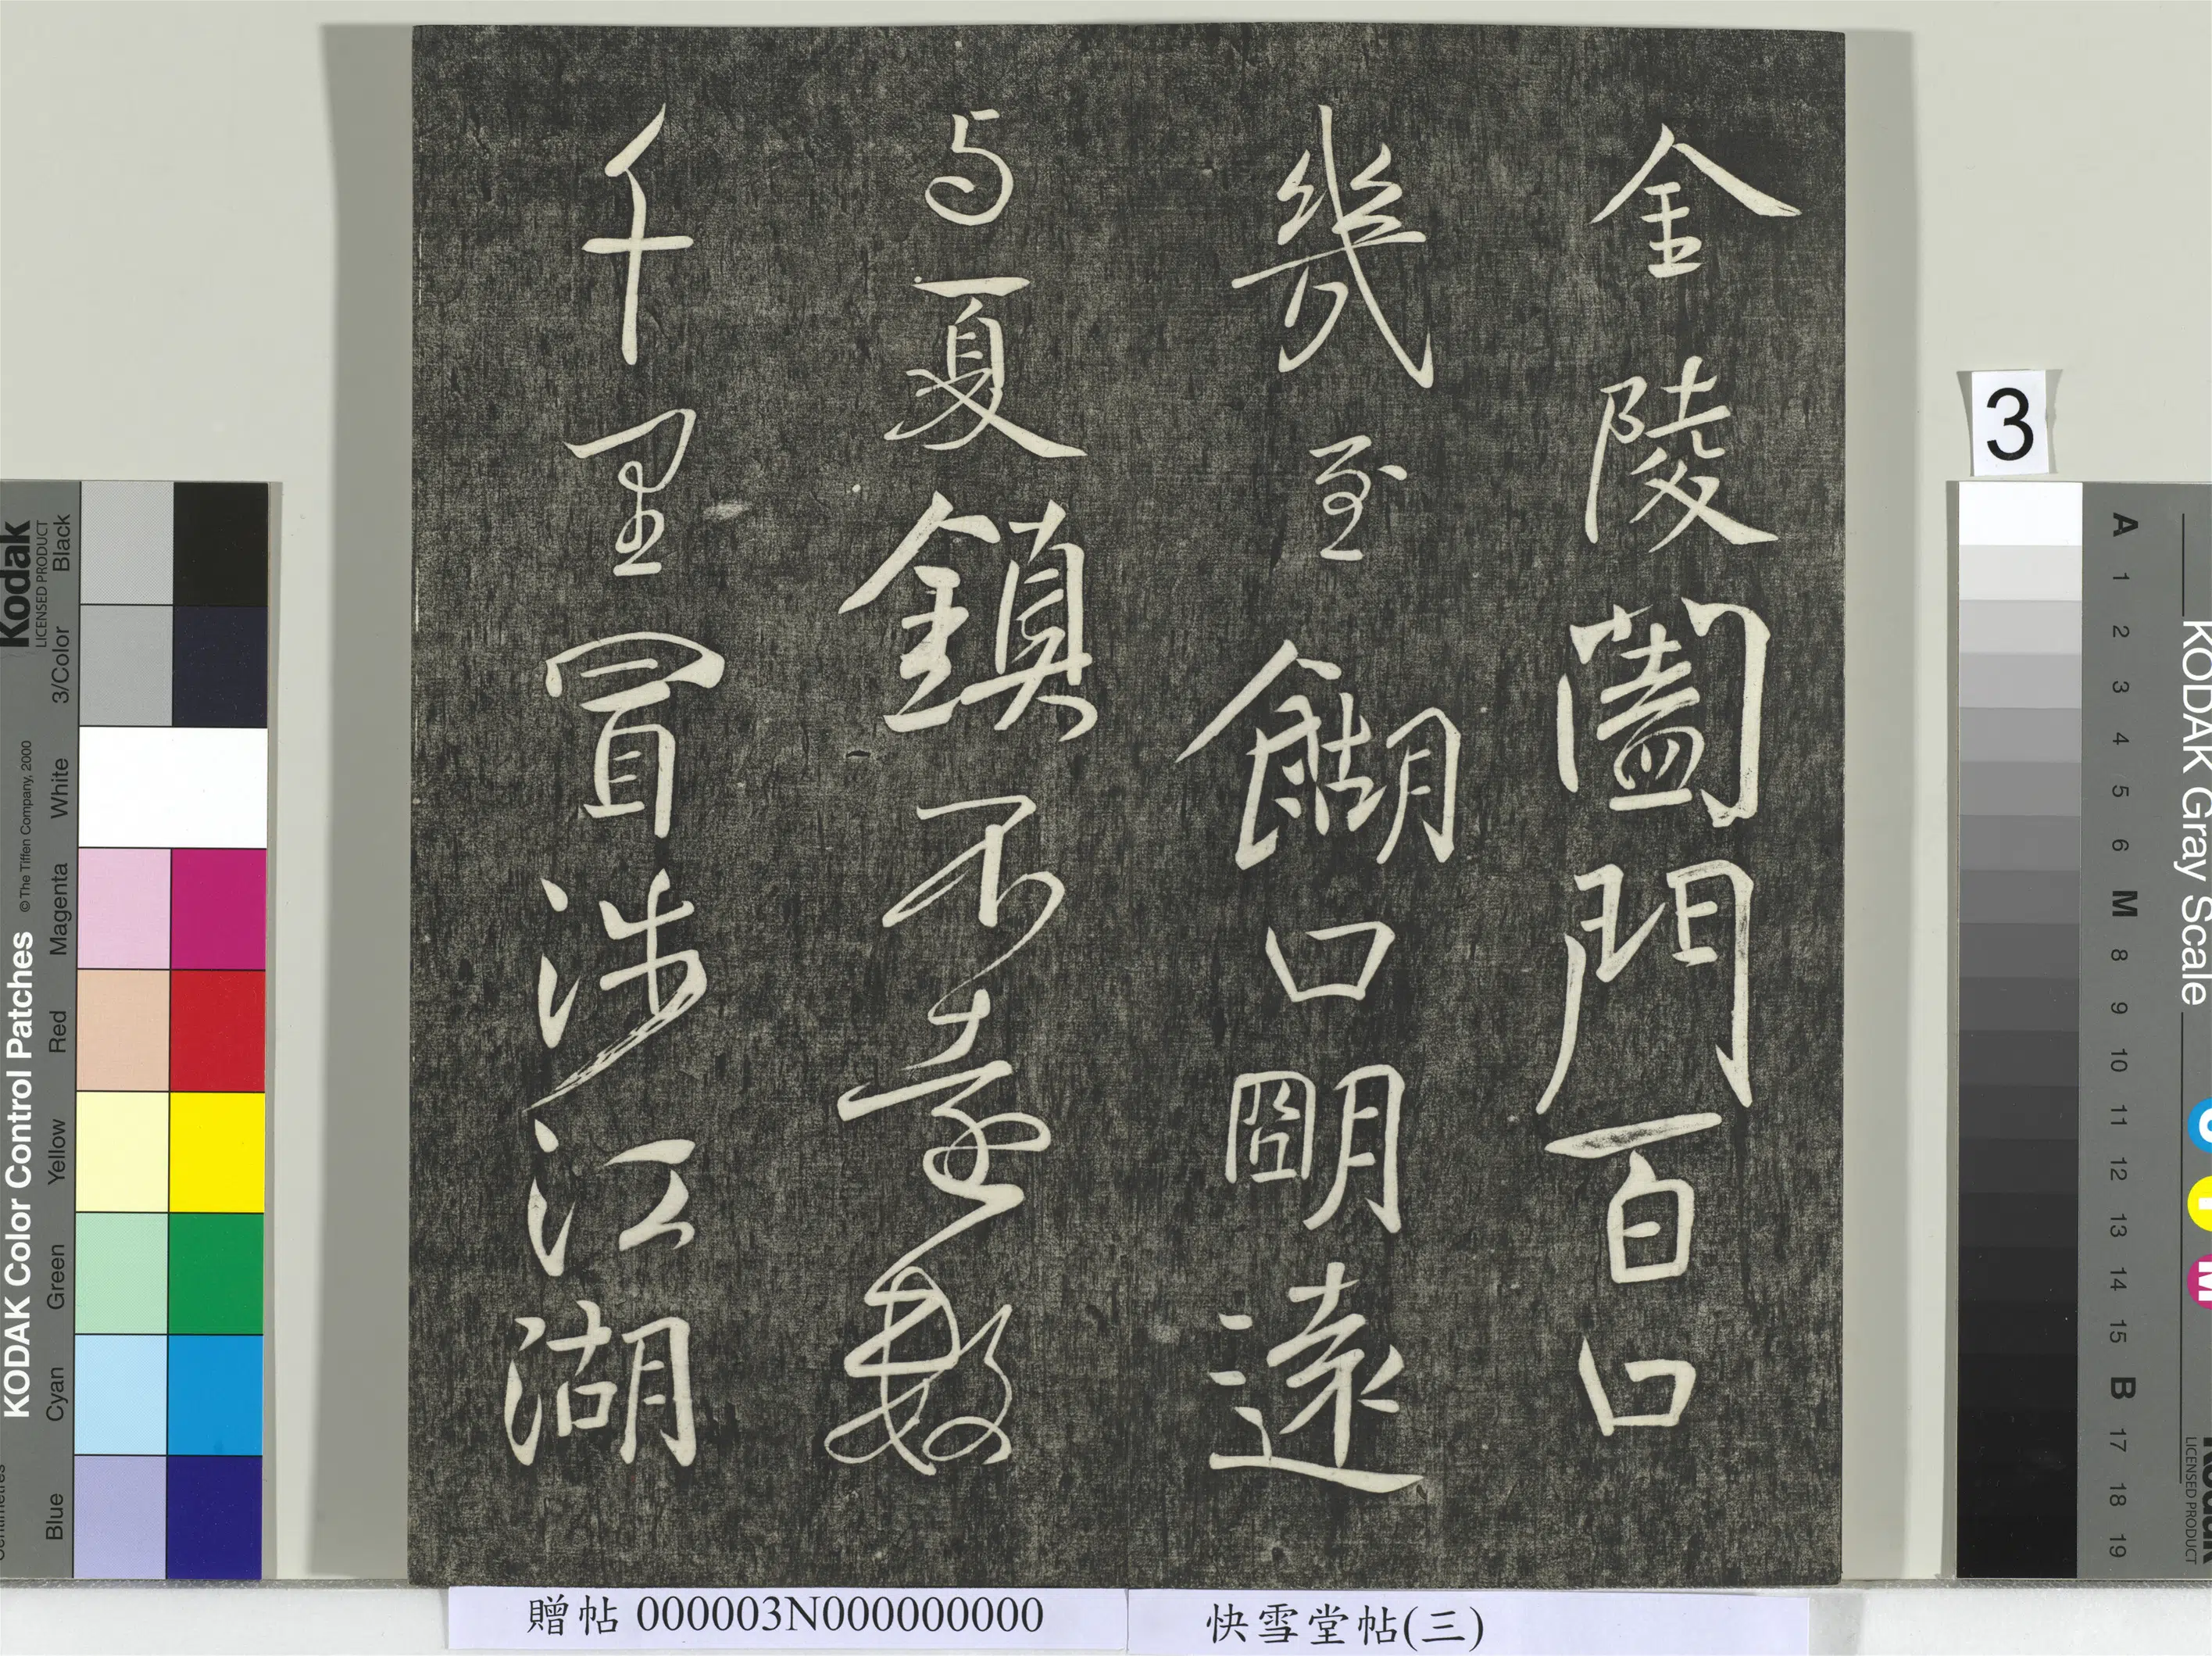 金陵闔門百口
幾至餬口明遠
与夏鎮不意數
千里冒涉江湖
贈帖 000003N000000000
快雪堂帖(三)
3
KODAK Color Control Patches
© The Tiffen Company, 2000
Kodak
LICENSED PRODUCT
Blue
Cyan
Green
Yellow
Red
Magenta
White
3/Color
Black
KODAK Gray Scale
A 1 2 3 4 5 6 M 8 9 10 11 12 13 14 15 B 17 18 19
C
Y
M
LICENSED PRODUCT